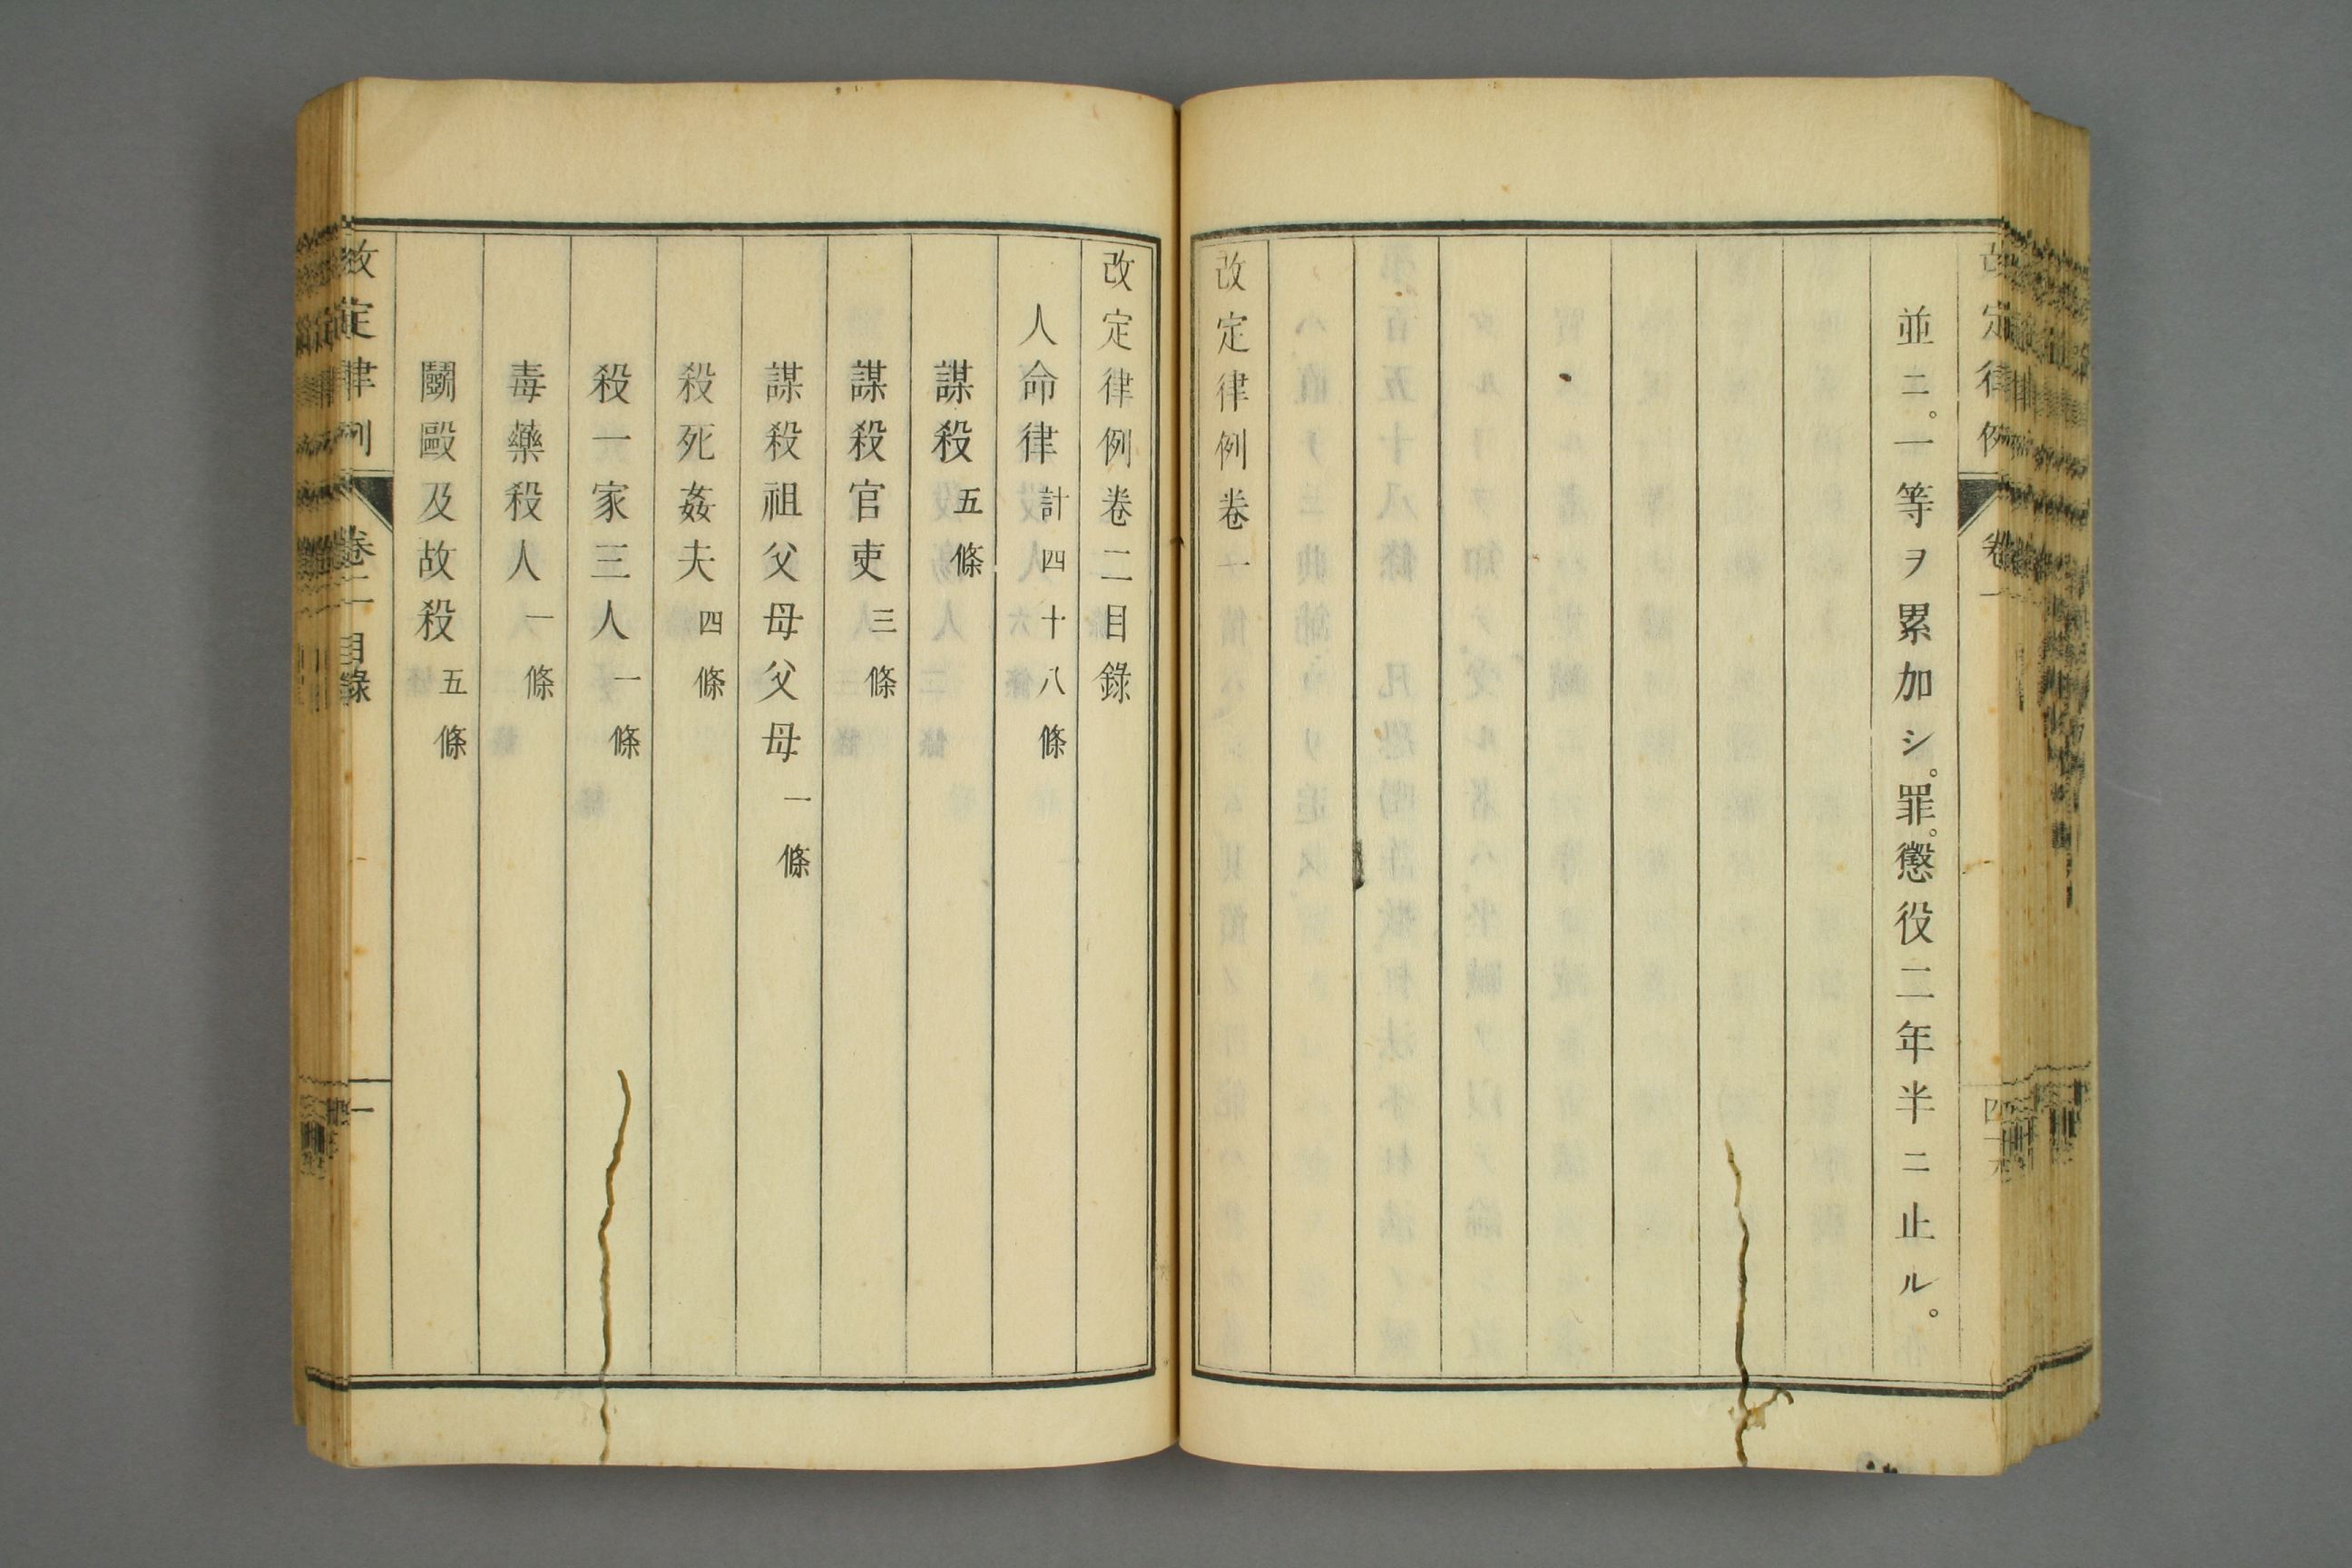 改定律例
卷一
並ニ。一等ヲ累加シ。罪。懲役二年半ニ止ル。
改定律例卷一
改定律例卷二目錄
人命律 計四十八條
謀殺 五條
謀殺官吏 三條
謀殺祖父母父母 一條
殺死姦夫 四條
殺一家三人 一條
毒藥殺人 一條
鬭毆及故殺 五條
改定律例
卷二 目錄
一